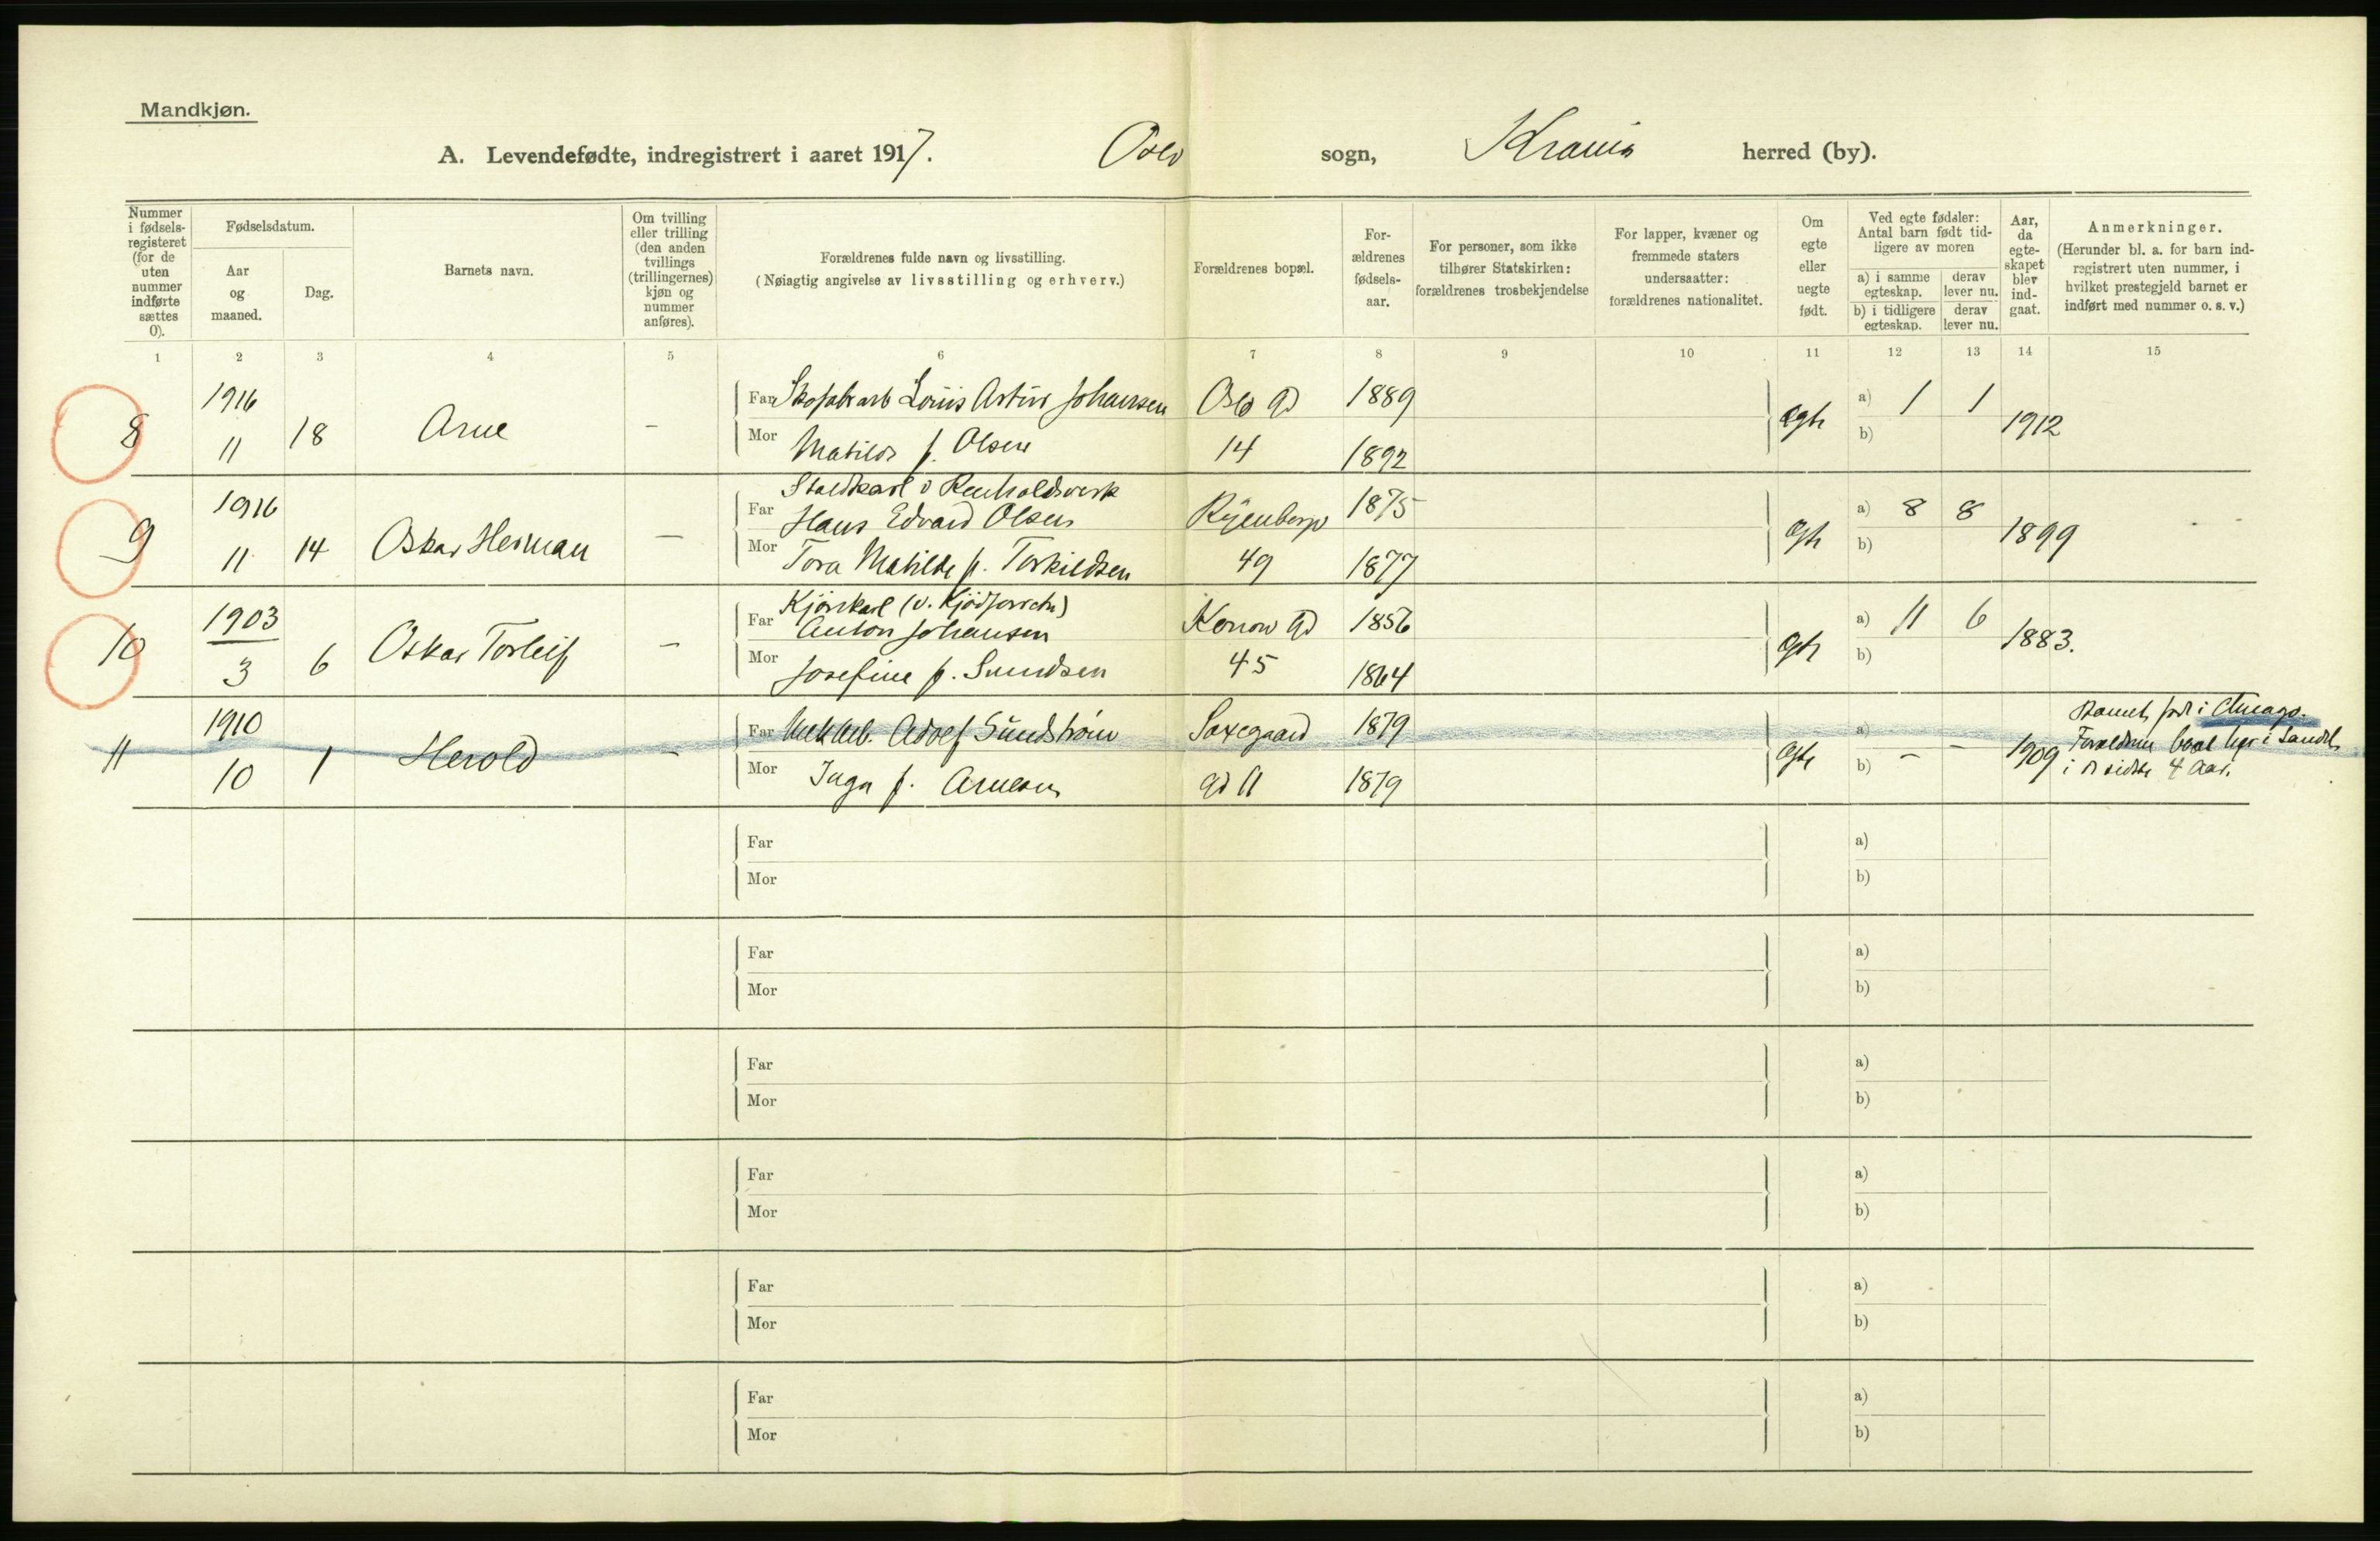 Mandkjøn.
A. Levendefødte, indregistrert i aaret 1917. Oslo sogn, Krania herred (by).
Nummer i fødsels-registeret (for de uten nummer indførte sættes 0).
Fødselsdatum.
Aar og maaned.
Dag.
Barnets navn.
Om tvilling eller trilling (den anden tvillings (trillingernes) kjøn og nummer anføres).
Forældrenes fulde navn og livsstilling.
(Nøiagtig angivelse av livsstilling og erhverv.)
Forældrenes bopæl.
For-ældrenes fødsels-aar.
For personer, som ikke tilhører Statskirken: forældrenes trosbekjendelse
For lapper, kvæner og fremmede staters undersaatter: forældrenes nationalitet.
Om egte eller uegte født.
Ved egte fødsler: Antal barn født tid-ligere av moren
a) i samme egteskap.
derav lever nu.
b) i tidligere egteskap.
derav lever nu.
Aar, da egte-skapet blev ind-gaat.
Anmerkninger.
(Herunder bl. a. for barn ind-registrert uten nummer, i hvilket prestegjeld barnet er indført med nummer o. s. v.)
1 2 3 4 5 6 7 8 9 10 11 12 13 14 15
1916 Far Skofabrarb Louis Artur Johansen Oslo gd 1889 a) 1 1
8 11 18 Arne - egte 1912
Mor Matilde f. Olsen 14 1892 b)
Staldkarl v Renholdsverk
1916 Far Hans Edvard Olsen Ryenbergv 1875 a) 8 8
9 11 14 Oskar Herman - egte 1899
Mor Tora Matilde f. Torkildsen 49 1877 b)
Kjørekarl
1903 Far Anton Johansen Konow gd 1856 a) 11 6
10 3 6 Oskar Torleif - egte 1883.
Mor Josefine f. Sundsen 45 1864 b)
1910 Far Mek arb. Adolf Sundstrøm Saxegaard 1879 a) Barnet født i Chicago.
11 10 1 Herold - egte - - 1909 Forældrene boet her i Landet
Mor Inga f. Arnesen gd 11 1879 b) i de sidste 4 Aar.
Far a)
Mor b)
Far a)
Mor b)
Far a)
Mor b)
Far a)
Mor b)
Far a)
Mor b)
Far a)
Mor b)